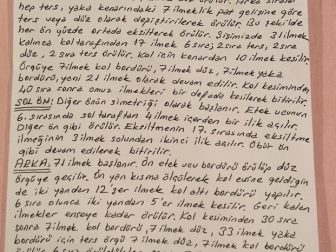 hep ters, yaka kenarındaki 7 ilmeklik pat gelişine göre
ters veya düz olarak değiştirilerek örülür. Bu şekilde
her ön yüzde ortada eksilterek örülür. Şişimizde 31 ilmek
kalınca kol tarafından 17 ilmek 6 sıra; 2 sıra ters, 2 sıra
düz, 2 sıra ters örülür. Kol için kenardan 10 ilmek kesilir.
Örgüye 7 ilmek kol bordürü, 7 ilmek düz, 7 ilmek yaka
bordürü, yeni 21 ilmek olarak devam edilir. Kol kesiminden
40 sıra sonra omuz ilmekleri bir defada kesilerek bitirilir.
SOL ÖN: Diğer önün simetriği olarak başlanır. Etek ucunun
6. sırasında sol taraftan 4 ilmek içerden bir ilik açılır.
Diğer ön gibi örülür. Eksiltmenin 17. sırasında eksiltme
ilmeğinin 3 ilmek solundan ikinci ilik açılır. Öbür ön
gibi devam edilerek bitirilir.
ARKA: 71 ilmek başlanır. Ön etek ucu bordürü örülüp düz
örgüye geçilir. Ön yan kısma ölçülerek kol evine geldiğin
de iki yandan 12'şer ilmek kol altı bordürü yapılır.
6 sıra olunca iki yandan 5'er ilmek kesilir. Geri kalan
ilmekler enseye kadar örülür. Kol kesiminden 30 sıra
sonra 7 ilmek kol bordürü, 7 ilmek düz, 33 ilmek yaka
bordürü için ters örgü 7 ilmek düz, 7 ilmek kol bordürü